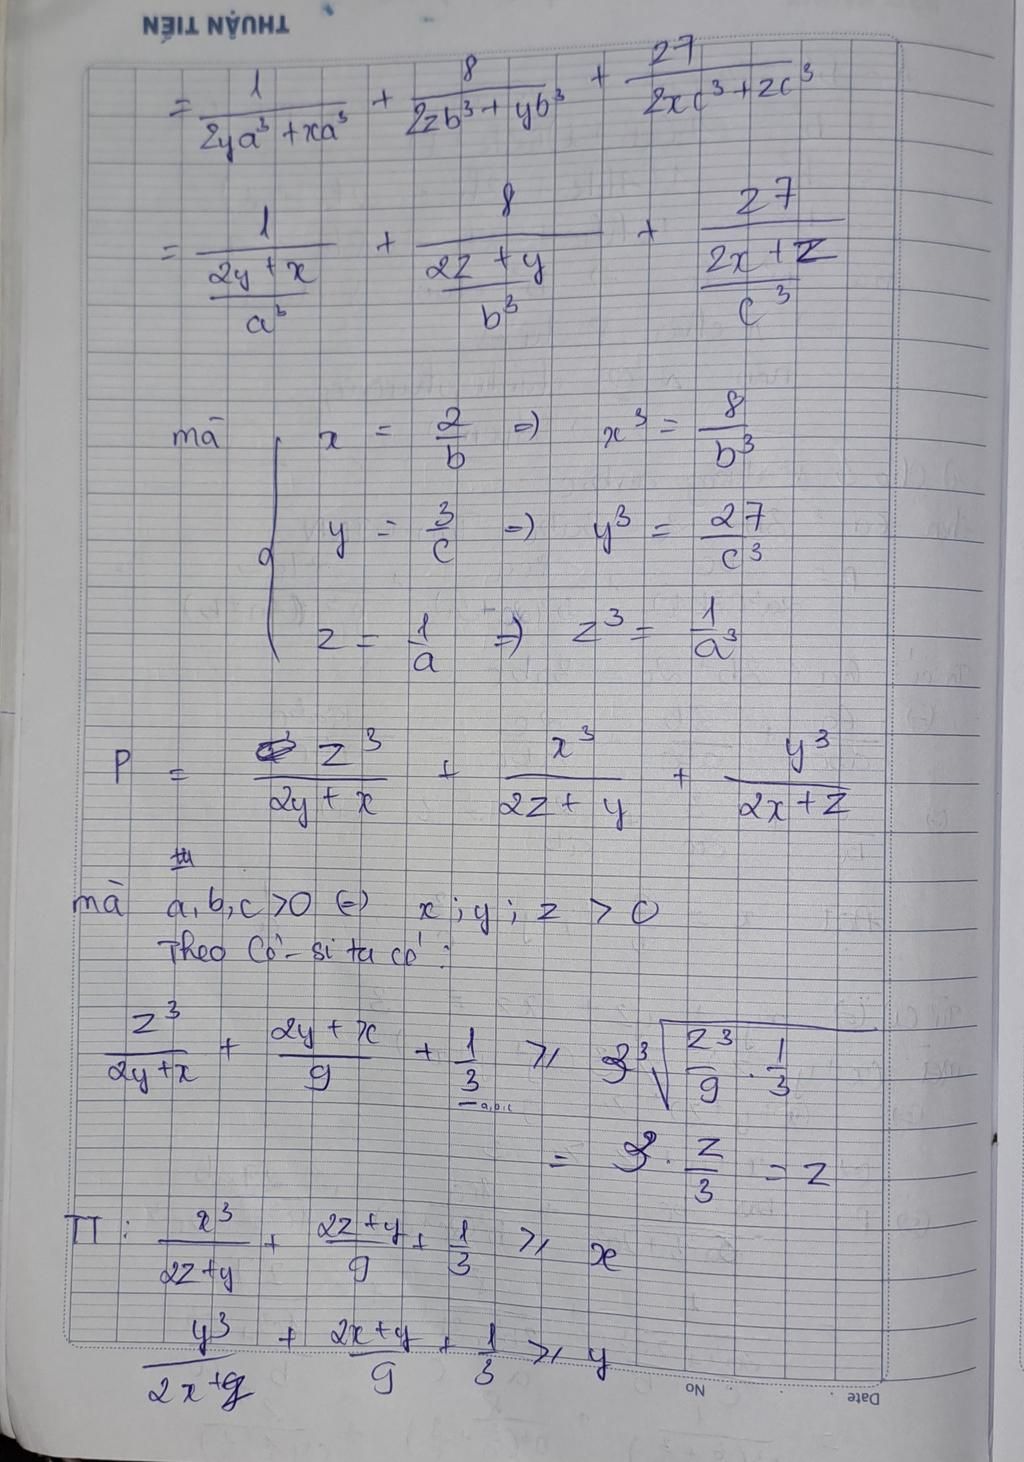 THUẬN TIẾN
= 1/(2ya³ + xa³) + 8/(2zb³ + yb³) + 27/(2xc³ + zc³)
= 1/((2y + x)/a³) + 8/((2z + y)/b³) + 27/((2x + z)/c³)
mà { x = 2/b => x³ = 8/b³
y = 3/c => y³ = 27/c³
z = 1/a => z³ = 1/a³
P = z³/(2y + x) + x³/(2z + y) + y³/(2x + z)
mà a, b, c > 0 (=) x ; y ; z > 0
Theo Cô - si ta có :
z³/(2y+x) + (2y + x)/9 + 1/3 ≥ 3 ³√(z³/9 . 1/3)
= 3 . z/3 = z
TT : x³/(2z+y) + (2z+y)/9 + 1/3 ≥ x
y³/(2x+z) + (2x+y)/9 + 1/3 ≥ y
No
Date